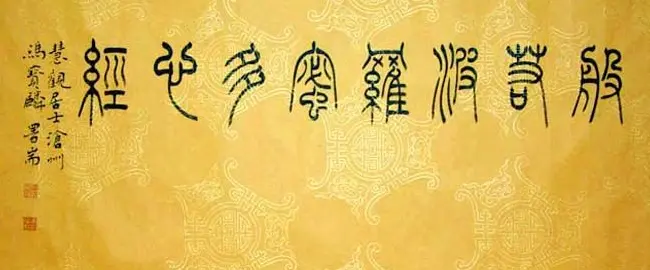 般若波羅蜜多心經
慧觀居士滄州
馮寶麟署耑